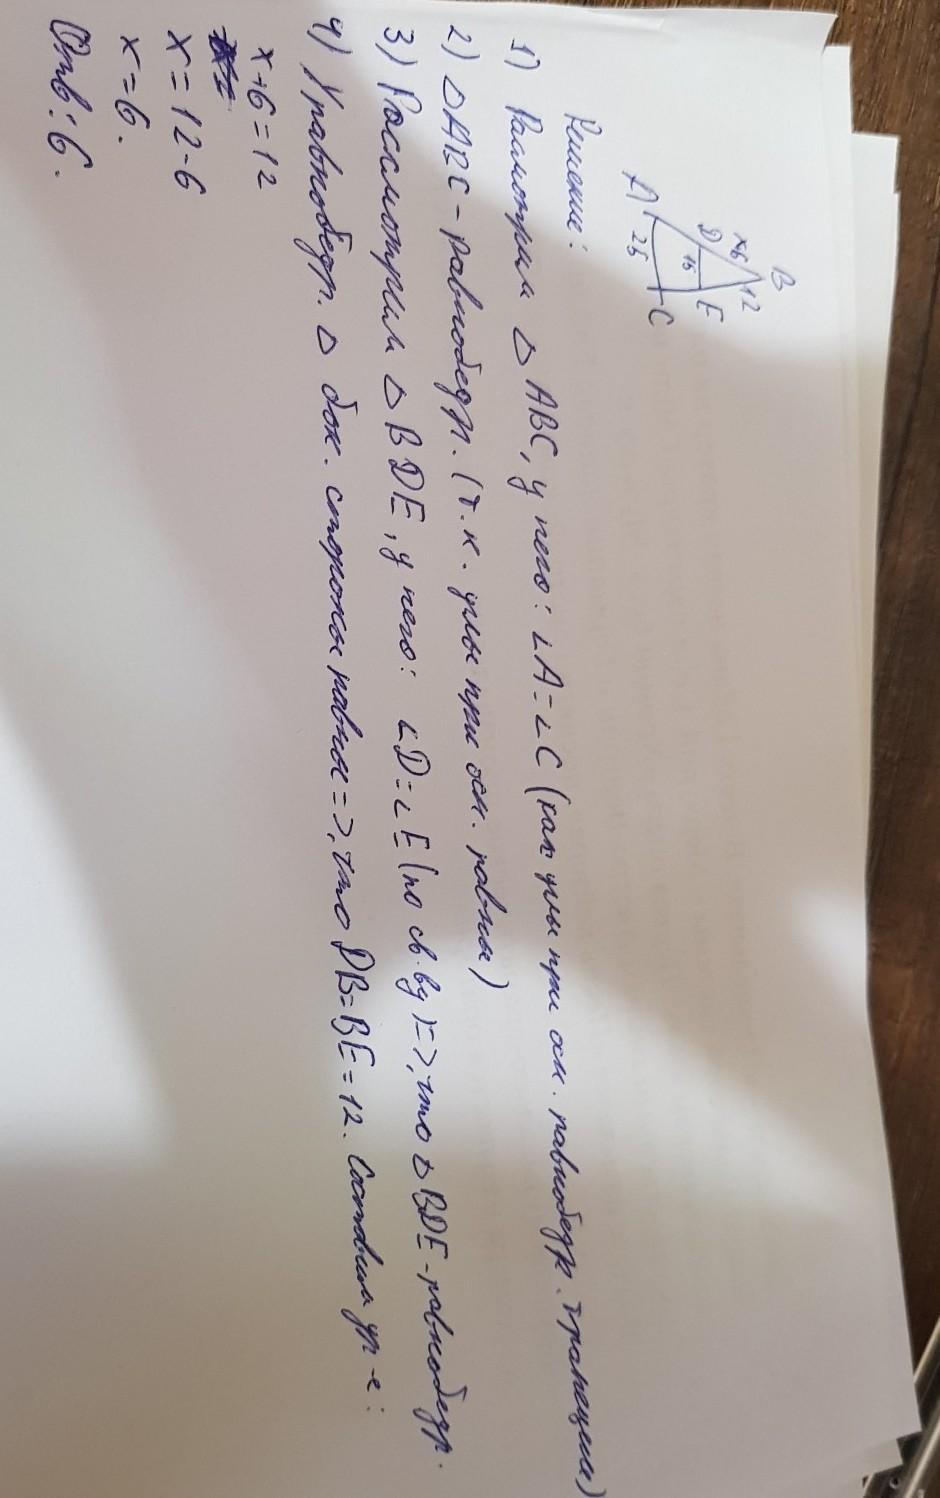 B
x+6
12
D
15
E
A
25
C
Решение:
1) Рассмотрим △ ABC, у него: ∠A=∠C (как углы при осн. равнобедр. трапеции)
2) △ABC - равнобедр. (т.к. углы при осн. равны)
3) Россмотрим △ BDE, у него: ∠D=∠E (по св.ву)=>, что △ BDE - равнобедр.
4) У равнобедр. △ бок. стороны равны =>, что DB=BE=12. Составим ур-е:
x+6=12
x=12-6
x=6.
Отв: 6.